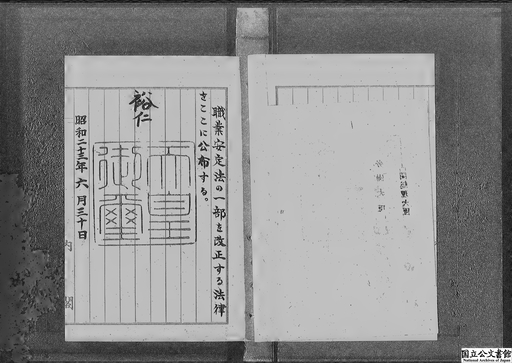 職業安定法の一部を改正する法律
をここに公布する。
裕仁
天皇
御璽
昭和二十三年六月三十日
内閣
国立公文書館
National Archives of Japan